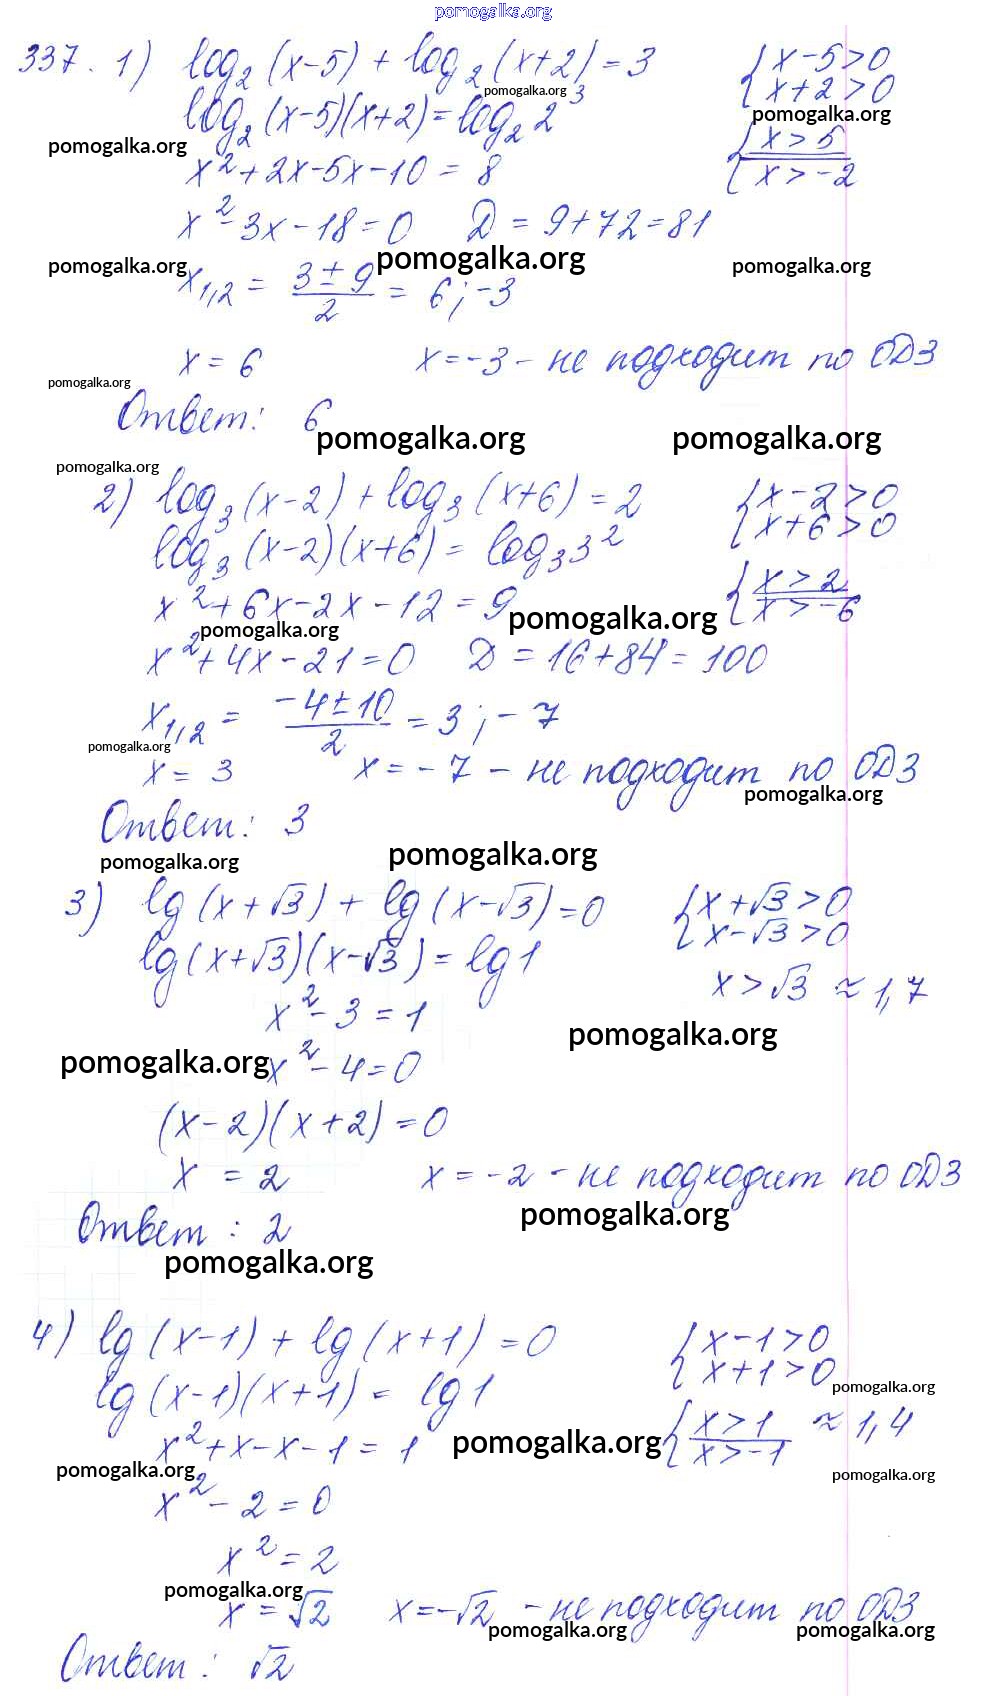 pomogalka.org
337. 1) log₂(x-5) + log₂(x+2) = 3 { x-5>0
pomogalka.org { x+2>0
log₂(x-5)(x+2) = log₂2³ pomogalka.org
pomogalka.org { x>5
x²+2x-5x-10 = 8 { x>-2
x²-3x-18=0 D = 9+72=81
pomogalka.org pomogalka.org pomogalka.org
x₁,₂ = (3±9)/2 = 6; -3
x = 6 x=-3 - не подходит по ОДЗ
pomogalka.org
Ответ: 6
pomogalka.org pomogalka.org
pomogalka.org
2) log₃(x-2) + log₃(x+6) = 2 { x-2>0
{ x+6>0
log₃(x-2)(x+6) = log₃3²
{ x>2
x²+6x-2x-12 = 9 { x>-6
pomogalka.org pomogalka.org
x²+4x-21=0 D = 16+84=100
x₁,₂ = (-4±10)/2 = 3; -7
pomogalka.org
x = 3 x = -7 - не подходит по ОДЗ
pomogalka.org
Ответ: 3
pomogalka.org pomogalka.org
3) lg(x+√3) + lg(x-√3)=0 { x+√3>0
{ x-√3>0
lg(x+√3)(x-√3) = lg1
x>√3 ≈1,7
x²-3 = 1
pomogalka.org
pomogalka.org
x²-4=0
(x-2)(x+2)=0
x = 2 x = -2 - не подходит по ОДЗ
pomogalka.org
Ответ: 2
pomogalka.org
4) lg(x-1) + lg(x+1) = 0 { x-1>0
{ x+1>0
pomogalka.org
lg(x-1)(x+1) = lg1
{ x>1 ≈1,4
x²+x-x-1 = 1 pomogalka.org { x>-1
pomogalka.org pomogalka.org
x²-2=0
x²=2
pomogalka.org
x = √2 x=-√2 - не подходит по ОДЗ
pomogalka.org pomogalka.org
Ответ: √2